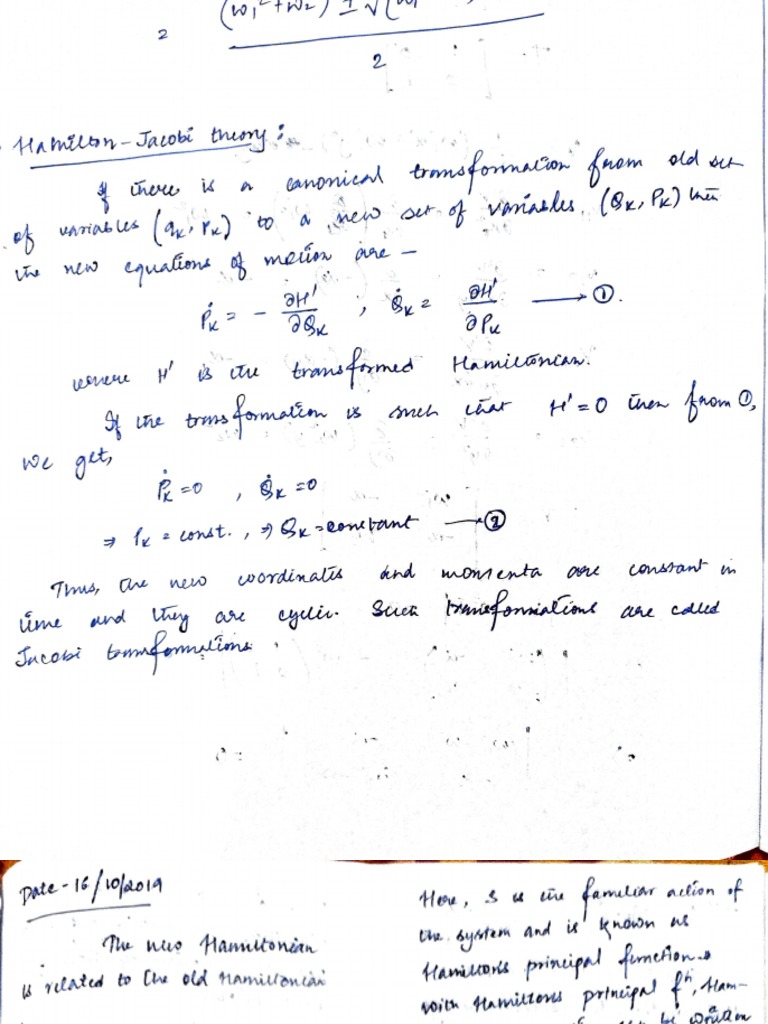 2 (ω₁²+ω₂) ± √(ω₁
2
Hamilton-Jacobi theory:
If there is a canonical transformation from old set
of variables (qₖ, pₖ) to a new set of variables (Qₖ, Pₖ) then
the new equations of motion are —
Ṗₖ = - ∂H'/∂Qₖ , Q̇ₖ = ∂H'/∂Pₖ ⟶ ①.
where H' is the transformed Hamiltonian.
If the transformation is such that H' = 0 then from ①,
we get,
Ṗₖ=0 , Q̇ₖ=0
⇒ Pₖ = const. , ⇒ Qₖ = constant ⟶ ②
Thus, the new coordinates and momenta are constant in
time and they are cyclic. Such transformations are called
Jacobi transformations
Date - 16/10/2019
The new Hamiltonian
is related to the old Hamiltonian
Here, S is the familiar action of
the system and is known as
Hamilton's principal function.
With Hamilton's principal fⁿ, Ham-
be written